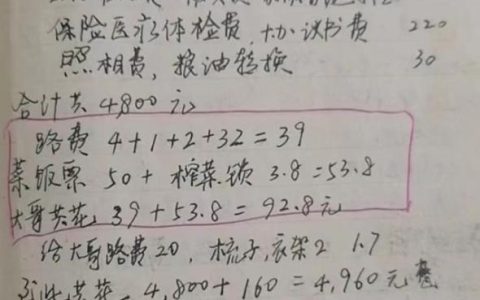 保险医疗体检费, 协议书费 220
照相费, 粮油转换 30
合计共 4800元
路费 4+1+2+32=39
菜饭票 50+榨菜、锁 3.8=53.8
大哥共花 39+53.8=92.8元
给大哥路费20, 梳子,衣架2 1.7
到此共花 4,800+160=4,960元